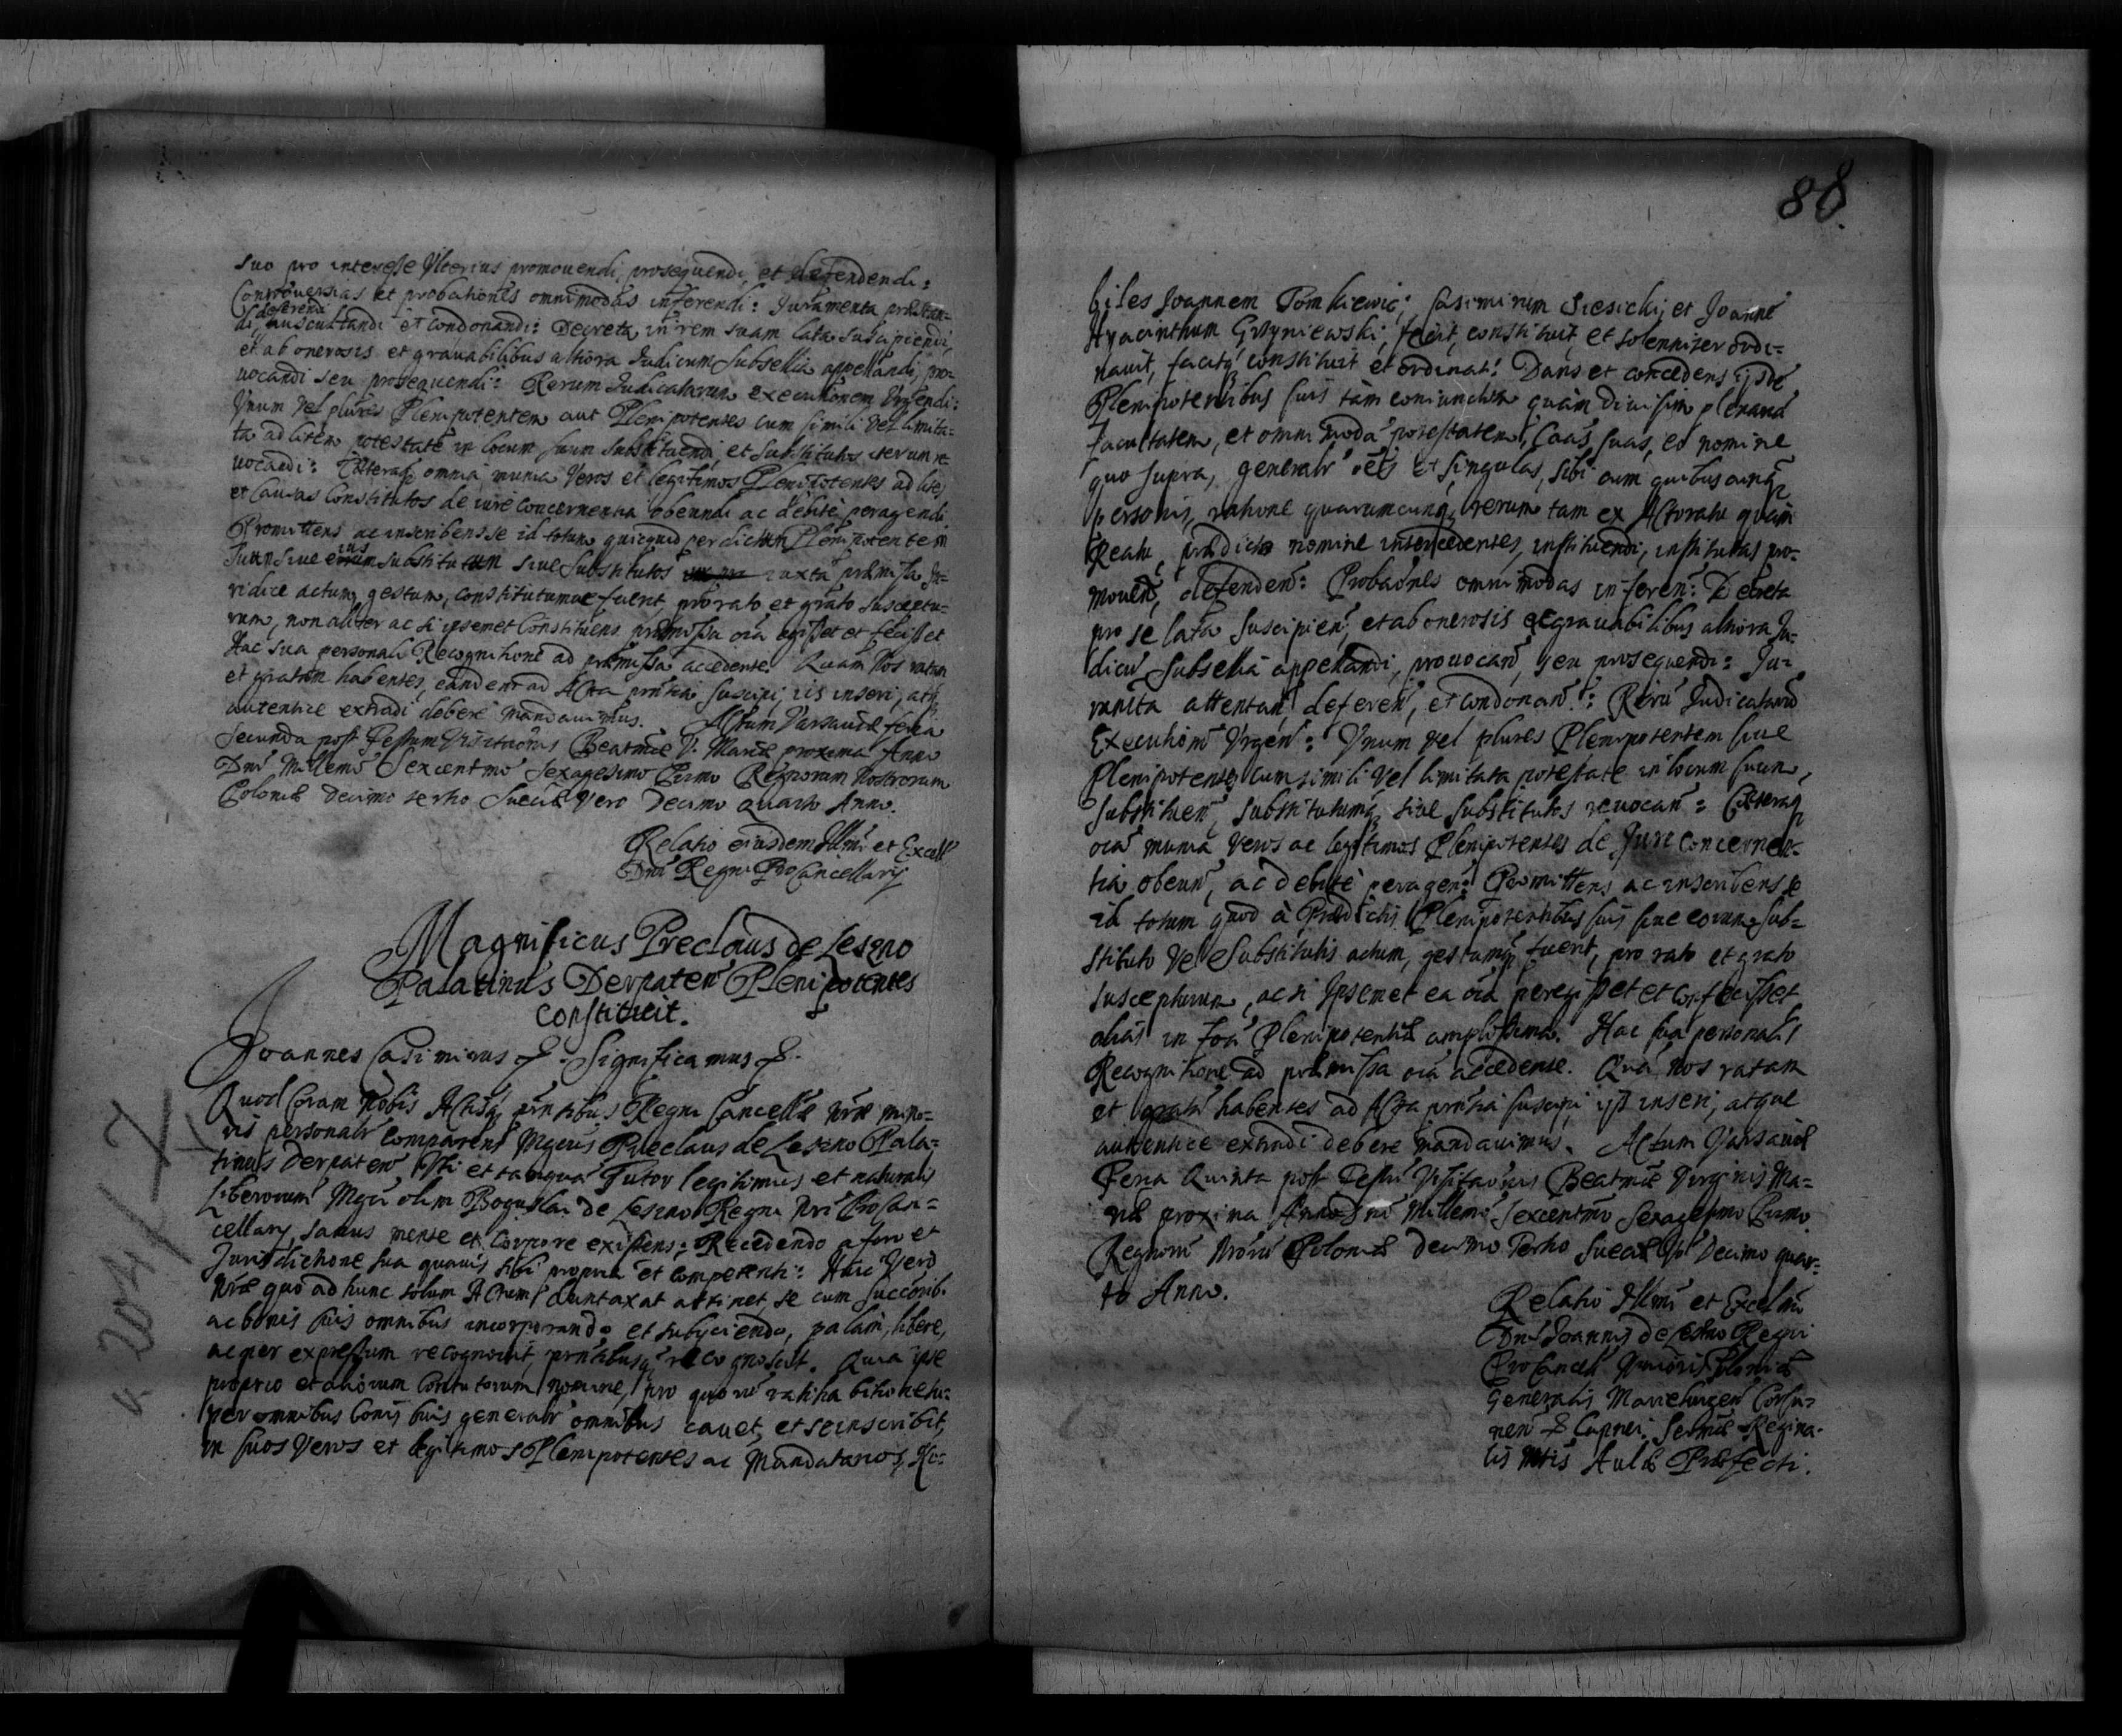 suo pro interesse Ulterius promovendi, prosequendi, et defendendi:
Controversias et probationes omnimodas inferendi: Juramenta præstan-
deferendi
di, auscultandi et condonandi: Decreta in rem suam lata suscipiendi,
et ab onerosis et gravabilibus altiora Judicum Subsellia appellandi, pro-
vocandi seu prosequendi: Rerum Judicatarum executionem Urgendi:
Unum vel plures Plenipotentem aut Plenipotentes cum simili vel limita-
ta ad litem potestate in locum suum substituendi, et substitutos iterum re-
vocandi: Cæteraq omnia munia Veros et legitimos Plenipotentes ad lites
et Causas Constitutos de iure concernentia obeundi ac debite peragendi.
Promittens ac inscribens se id totum quicquid per dictum Plenipotentem
Suum sive eius substitutum sive Substitutos iuxta præmissa Ju-
ridice actum, gestum, constitutumve fuerit, pro rato et grato susceptu-
rum, non aliter ac si ipsemet Constituens præmissa oia egisset et fecisset
Hac sua personali Recognitione ad præmissa accedente. Quam Nos ratam
et gratam habentes, eandem ad Acta pntia suscipi, iis inseri, atq
autentice extradi debere mandavimus. Actum Varsaviæ feria
secunda post Festum Visitaonis Beatmæ V. Mariæ proxima Anno
Dni Millemo Sexcentmo Sexagesimo Primo Regnorum Nostrorum
Poloniæ decimo tertio Sueciæ Vero Decimo Quarto Anno.
Relatio eiusdem Illmi et Excell
Dni Regni ProCancellarij
Magnificus Preclaus de Leszno
Palatinus Derpaten Plenipotentes
constituit.
Joannes Casimirus &. Significamus &.
Quod Coram Nobis Actisq pntibus Regni Cancellæ Nræ mino-
ris personalr comparens Mgcus Preclaus de Leszno Pala-
tinus Derpaten Uti et tanqua Tutor legitimus et naturalis
Liberorum Mgci olim Boguslai de Leszno Regni Nri ProCan-
cellarij, sanus mente et corpore existens; Recedendo a foro et
Jurisdictione sua quavis sibi propria et competenti: Huic Vero
Nræ quo ad hunc solum Actum duntaxat attinet, se cum succorib.
ac bonis suis omnibus incorporando et subijciendo, palam, libere,
ac per expressum recognovit, pntibusq recognoscit. Quia ipse
proprio et aliorum Contutorum nomine, pro quorū ratihabitione su-
per omnibus bonis suis generalr omnibus cavet, et se inscribit,
in suos Veros et legitimos Plenipotentes ac Mandatarios, No-
88.
biles Joannem Tomkiewic; Casimirum Siesicki; et Joanné
Hyacinthum Grzyniewski, fecit, constituit, et solenniter ordi-
navit, facitq constituit et ordinat: Dans et concedens ijsdé
Plenipotentibus suis tàm coniunctim quàm divisim plenariā
facultatem, et omnimodā potestatem, Caās suas, eo nomine
quo supra, generalr oēs et singulas, sibi cum quibuscunq
personis, ratione quarumcunq rerum tam ex Actoratu quàm
Reatu, prædicto nomine intercedentes, instituendi, institutas pro-
moven, defenden: Probaōnes omnimodas inferen: Decreta
pro se lata suscipien, et ab onerosis et gravabilibus altiora Ju-
dicū Subsellia appellandi, provocan, seu prosequendi: Ju-
ramta attentan, deferen, et condonan: Rerū Judicatarū
Executionē Urgen: Unum vel plures Plenipotentem sive
Plenipotentes cum simili Vel limitata potestate in locum suum,
substituen, substitutumq sive substitutos revocan: Cæteraq
oia munia Veros ac legitimos Plenipotentes de Jure concernen-
tia obeun, ac debite peragen: Promittens ac inscribens se
id totum quod à Prædictis Plenipotentibus suis sive eorum Sub-
stituto Vel Substitutis actum, gestumq fuerit, pro rato et grato
suscepturum, ac si Ipsemet ea oia peregisset et confecisset
alias in foā Plenipotentiæ amplissima. Hac sua personali
Recognitione ad præmissa oia accedente. Quā nos ratam
et gratā habentes ad Acta pntia suscipi ijs inseri, atque
autentice extradi debere mandavimus. Actum Varsaviæ
Feria Quinta post Festū Visitaōnis Beatmæ Virginis Ma-
riæ proxima Anno Dni Millemo Sexcentmo Sexagesmo Primo
Regnorū Nrōrū Poloniæ decimo Tertio Sueciæ Vo Decimo quar-
to Anno.
Relatio Illmi et Excelmi
Dni Joannis de Leszno Regni
ProCancell Maioris Poloniæ
Generalis Marieburgen Corsu-
nen & Capnei. Sermæ Regina-
lis Mtis Aulæ Præfecti.